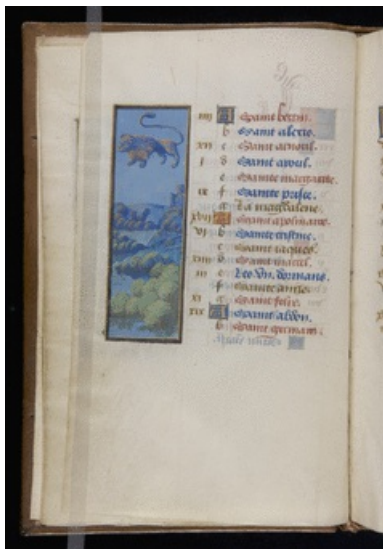 iiii A Saint bertin.
b Saint alexis.
xii c Saint arnoul.
i d Saint
e Sainte marguerite.
ix f Sainte
g La magdalene.
xvii A Saint
vi b Sainte cristine.
c Saint iaques.
xiiii d Saint marcel.
iii e Les vii. dormans.
f Sainte anne.
xi g Saint
xix A Saint abdon.
b Saint germain.